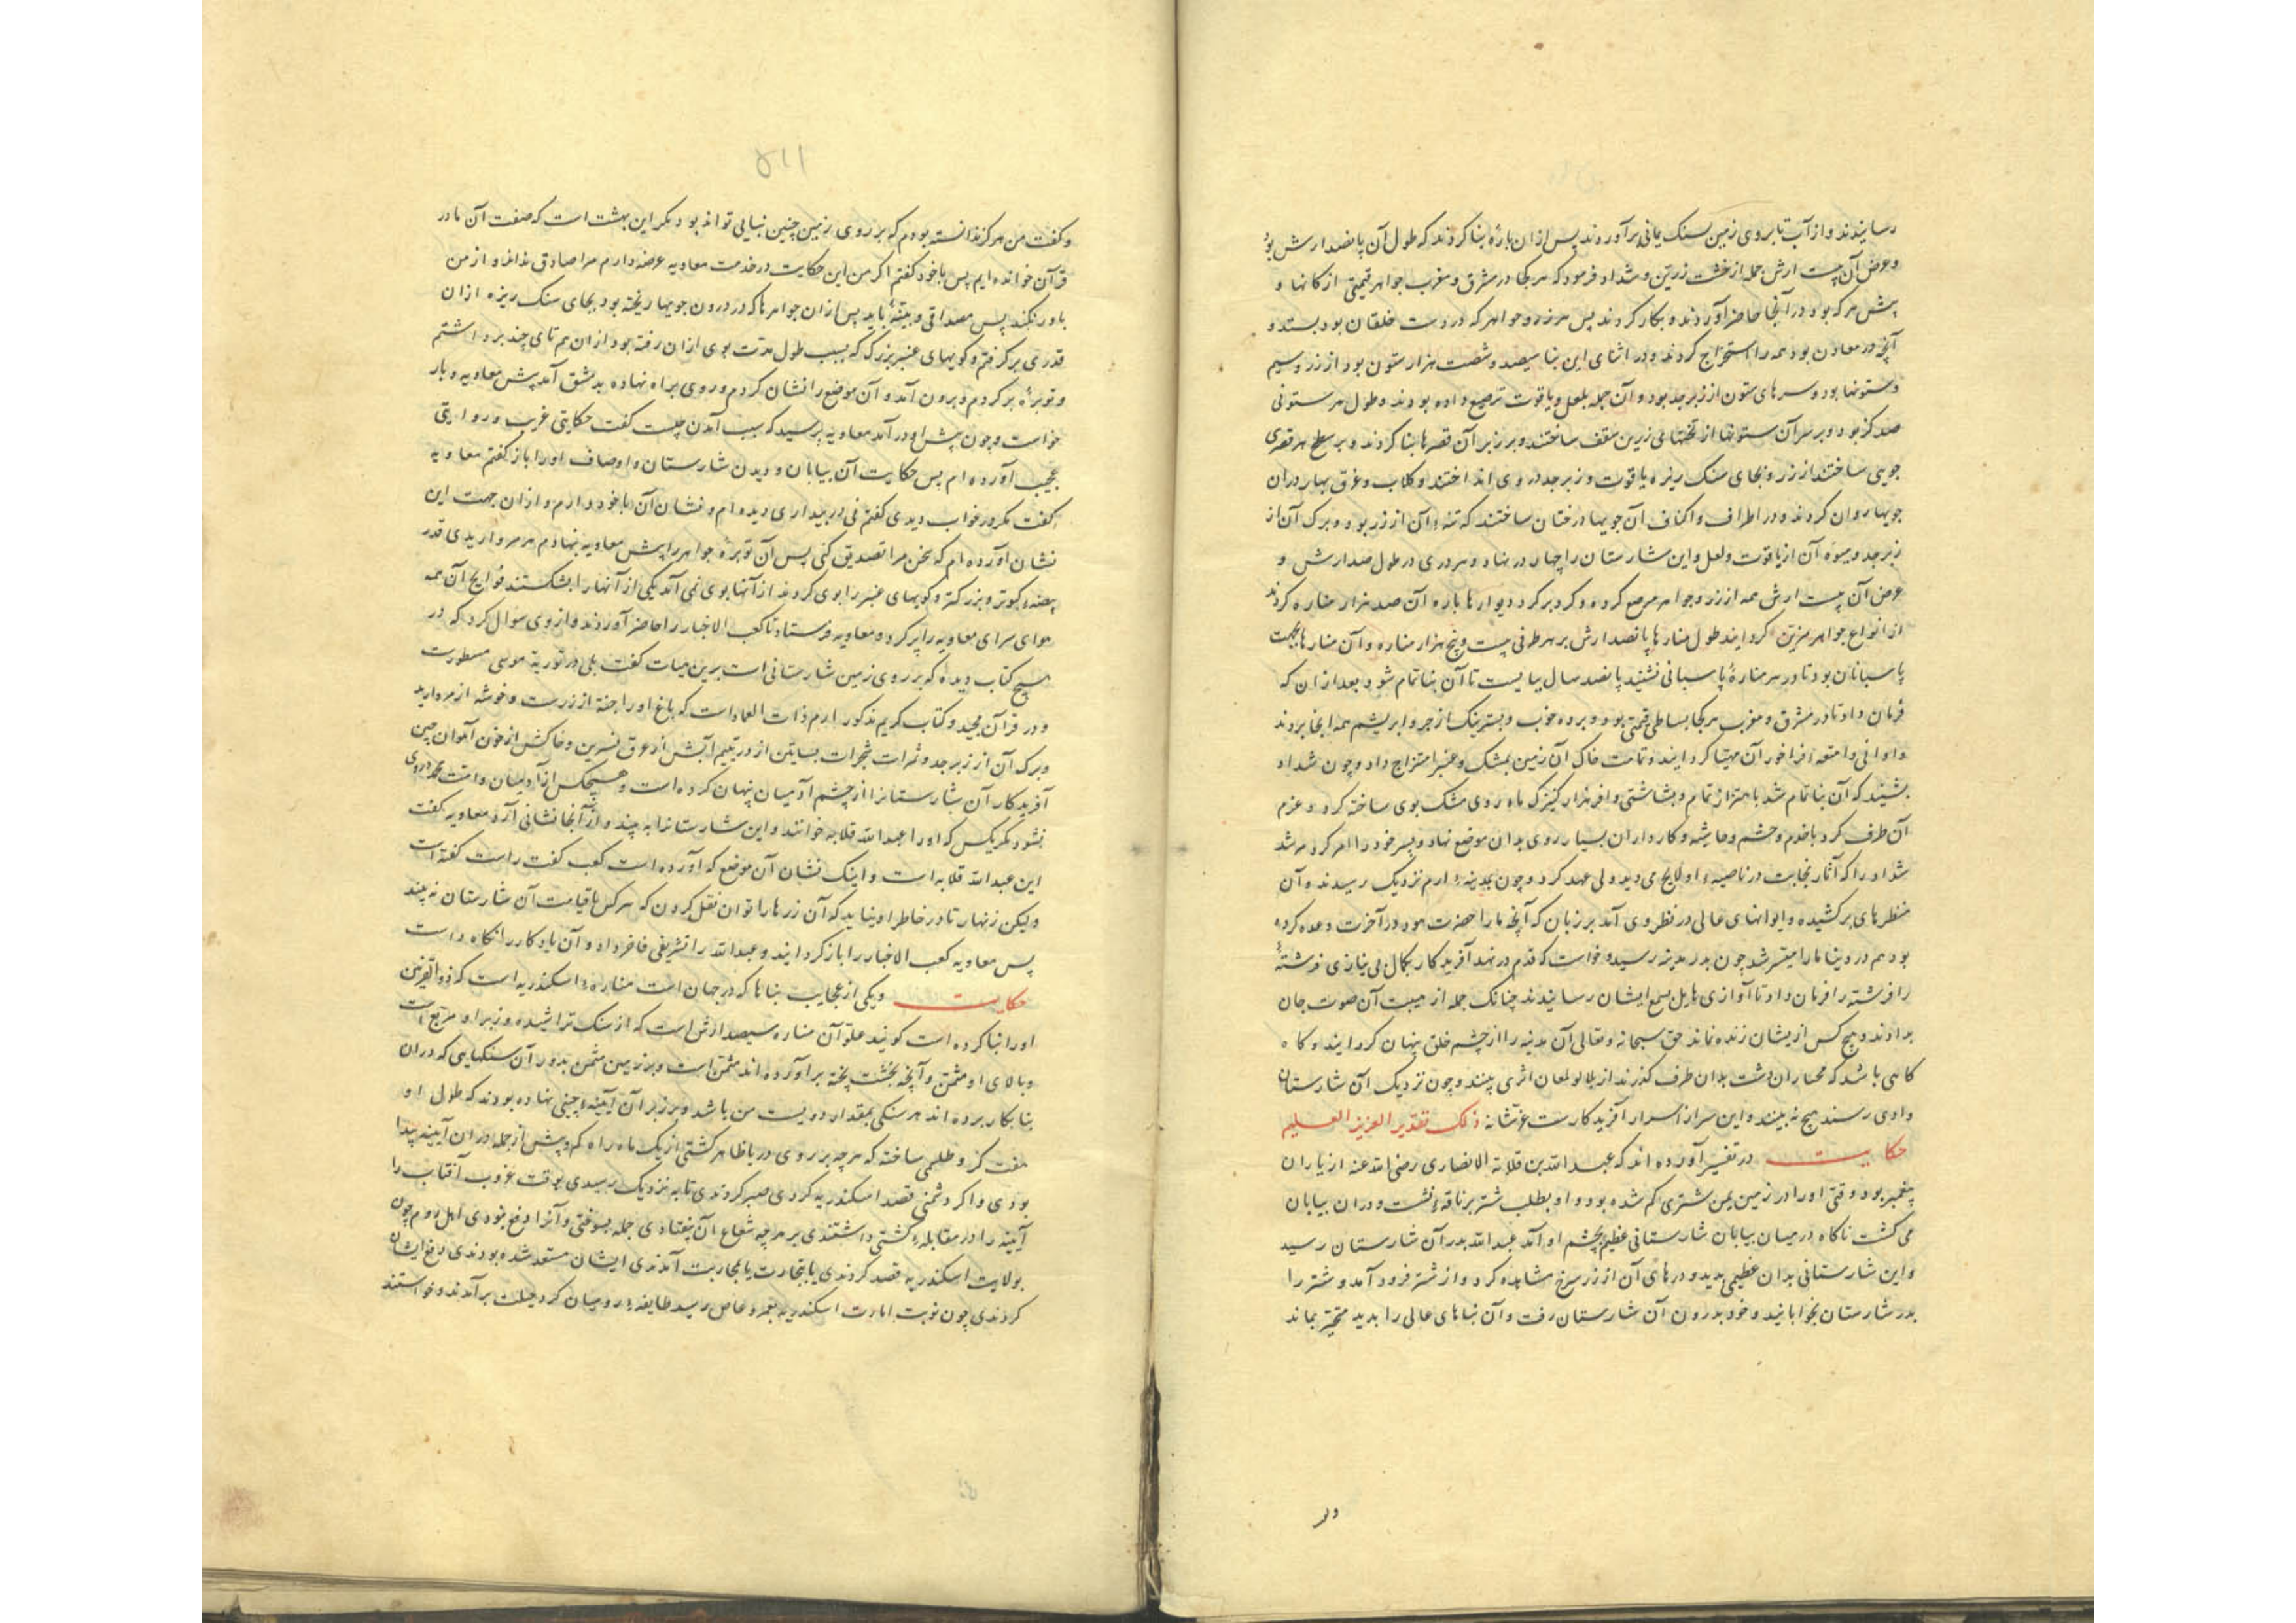 رسانیدند و از آب تا بروی زمین بسنک یمانی برآوردند پس ازان بارهٔ بنا کردند که طول آن پانصد ارش بود
و عرض آن بیست ارش جمله از خشت زرین و شداد فرمود که هر کجا در مشرق و مغرب جواهر قیمتی از کانها و
پیش هر که بود در آنجا حاضر آوردند و بکار کردند پس هر زر و جواهر که در دست خلقان بود بستد و
آنچه در معادن بود همه را استخراج کردند و در اثنای این بنا سیصد و شصت هزار ستون بود از زر و سیم
و ستونها بود و سرهای ستون از زبرجد بود و آن جمله بلعل و یاقوت ترصیع داده بودند و طول هر ستونی
صد کز بود و بر سر آن ستونها از تختهائی زرین سقف ساختند و بر زبر آن قصرها بنا کردند و بر سطح هر قصری
جویی ساختند از زر و بجای سنک ریزه یاقوت و زبرجد در وی انداختند و کلاب و عرق بهار دران
جویها روان کردند و در اطراف و اکناف آن جویها درختان ساختند که تنهٔ آن از زر بود و برک آن از
زبرجد و میوه آن از یاقوت و لعل و این شارستان را چهار در نهاد و هر دری در طول صد ارش و
عرض آن بیست ارش همه از زر و جواهر مرصع کرده و کرد بر کرد دیوارها باره آن صد هزار مناره کردند
از انواع جواهر مزین کردانید طول منارها پانصد ارش بر هر طرفی بیست و پنج هزار مناره و آن منارها بجهت
پاسبانان بود تا در هر منارهٔ پاسبانی نشیند پانصد سال ببایست تا آن بنا تمام شود بعد ازان که
فرمان داد تا در مشرق و مغرب هر کجا بساطی قیمتی بود و برده خوب و بستر نیک از جر و ابریشم همه آنجا بردند
و اوانی و امتعه فراخور آن مهیا کردانید و تمامت خاک آن زمین بمشک و عنبر امتزاج داد و چون شداد
بشنید که آن بنا تمام شد باهتزاز تمام و بشاشتی وافر هزار کنیزک ماه روی مشک بوی ساخته کرد و عزم
آن طرف کرد با خدم و حشم و حاشیه و کارداران بسیار روی بدان موضع نهاد و پسر خود را
شداد را که آثار نجابت در ناصیهٔ او لایح می دید ولی عهد کرد و چون بمدینهٔ ارم نزدیک رسیدند و آن
منظرهای برکشیده و ایوانهای عالی در نظر وی آمد بر زبان که آنچه ما را حضرت هود در آخرت وعده کرده
بود هم در دنیا ما را میسر شد چون بدر مدینه رسید و خواست که قدم در نهد آفریدکار بکمال بی نیازی فرشتهٔ
را فرشته را فرمان داد تا آوازی هایل بسمع ایشان رسانیدند چنانک جمله از هیبت آن صوت جان
بدادند و هیچ کس ازیشان زنده نماند حق سبحانه و تعالی آن مدینه را از چشم خلق پنهان کردانید و کاه
کاهی باشد که مجتازان دشت بدان طرف کذرند از تلالو لمعان اثری بینند و چون نزدیک آن شارستان
وادی رسند هیچ نه بینند و این سر از اسرار آفریدکارست عز شانه ذلک تقدیر العزیز العلیم
حکایت در تفسیر آورده اند که عبدالله بن قلابه الانصاری رضی الله عنه از یاران
پیغمبر بود وقتی او را در زمین یمن شتری کم شده بود و او بطلب شتر بر ناقهٔ نشست و دران بیابان
می کشت ناکاه در میان بیابان شارستانی عظیم بچشم او آمد عبدالله بدر آن شارستان رسید
و این شارستانی بدان عظیمی بدید و درهای آن از زر سرخ مشاهده کرد و از شتر فرود آمد و شتر را
بدر شارستان بخوابانید و خود بدرون آن شارستان رفت و آن بناهای عالی را بدید متحیر بماند
۵۱۱
و کفت من هرکز ندانسته بودم که بر روی زمین چنین بنیایی تواند بود مکر این بهشت است که صفت آن ما در
قرآن خوانده ایم پس با خود کفتم اکر من این حکایت در خدمت معاویه عرضه دارم مرا صادق نداند و از من
باور نکند پس مصداقی و بینهٔ باید پس ازان جواهرها که در درون جویها ریخته بود بجای سنک ریزه ازان
قدری برکرفتم و کویهای عنبر بزرک که بسبب طول مدت بوی ازان رفته بود ازان هم تای چند برداشتم
و توبرهٔ پر کردم و برون آمد و آن موضع را نشان کردم و روی براه نهاده بدمشق آمد پیش معاویه و بار
خواست و چون پیش او درآمد معاویه پرسید که سبب آمدن چیست کفت حکایتی غریب و روایتی
عجیب آورده ام پس حکایت آن بیابان و دیدن شارستان و اوصاف او را باز کفتم معاویه
کفت مکر در خواب دیدی کفتم نی در بیداری دیده ام و نشان آن با خود دارم و ازان جهت این
نشان آورده ام که سخن مرا تصدیق کنی پس آن توبرهٔ جواهر را پیش معاویه بنهادم هر مرواریدی قدر
بیضهٔ کبوتر و بزرکتر و کویهای عنبر را بوی کردند از آنها بوی نمی آمد یکی از آنها را بشکستند فوایح آن همه
هوای سرای معاویه را پر کرد و معاویه فرستاد تا کعب الاخبار را حاضر آوردند و از وی سوال کرد که در
هیچ کتاب دیدهٔ که بر روی زمین شارستانی است برین هیات کفت بلی در توریة موسی مسطورست
و در قرآن مجید و کتاب کریم مذکور ارم ذات العماد است که باغ او را جنه از زرست و خوشه از مروارید
و برک آن از زبرجد و ثمرات شجرات بساتین از در یتیم آبش از عرق نسرین و خاکش از خون آهوان چین
آفریدکار آن شارستانرا از چشم آدمیان پنهان کرده است و هیچکس از آدمیان و امت محمد در وی
نشود مکر یکس که او را عبدالله قلابه خوانند و این شارستانرا به بیند و از آنجا نشانی آرد معاویه کفت
این عبدالله قلابه است و اینک نشان آن موضع که آورده است کعب کفت راست کفته است
ولیکن زنهار تا در خاطر او نیاید که آن زرها را توان نقل کردن که هر کس تا قیامت آن شارستان نه بیند
پس معاویه کعب الاخبار را باز کردانید و عبدالله را تشریفی فاخر داد و آن یادکار را نکاه داست
حکایت و یکی از عجایب بناها که در جهان است منارهٔ اسکندریه است که ذوالقرنین
او را بنا کرده است کویند علو آن مناره سیصد ارش است که از سنک تراشیده و زبر او مربع است
و بالای او مثمن و آنچه بخشت پخته برآورده اند مثمن است و بر زمین مثمن بدور آن سنکهایی که دران
بنا بکار برده اند هر سنکی بمقدار دویست من باشد و بر زبر آن آیینهٔ چینی نهاده بودند که طول او
هفت کز و طلسمی ساخته که هر چه بر روی دریا ظاهر کشتی از یک ماه راه کم و بیش از جمله دران آیینه پیدا
بودی و اکر دشمنی قصد اسکندریه کردی صبر کردندی تا به نزدیک رسیدی بوقت غروب آفتاب را
آیینه را در مقابلهٔ کشتی داشتندی بر هر چه شعاع آن بیفتادی جمله بسوختی و آنرا دفع نمودی اهل روم چون
بولایت اسکندریه قصد کردندی یا بتجارت یا بمحاربت آمدندی ایشان مستعد شده بودندی دفع ایشان
کردندی چون نوبت امارت اسکندریه بعمرو عاص رسید طایفهٔ رومیان کرد حیلت برآمدند و خواستند